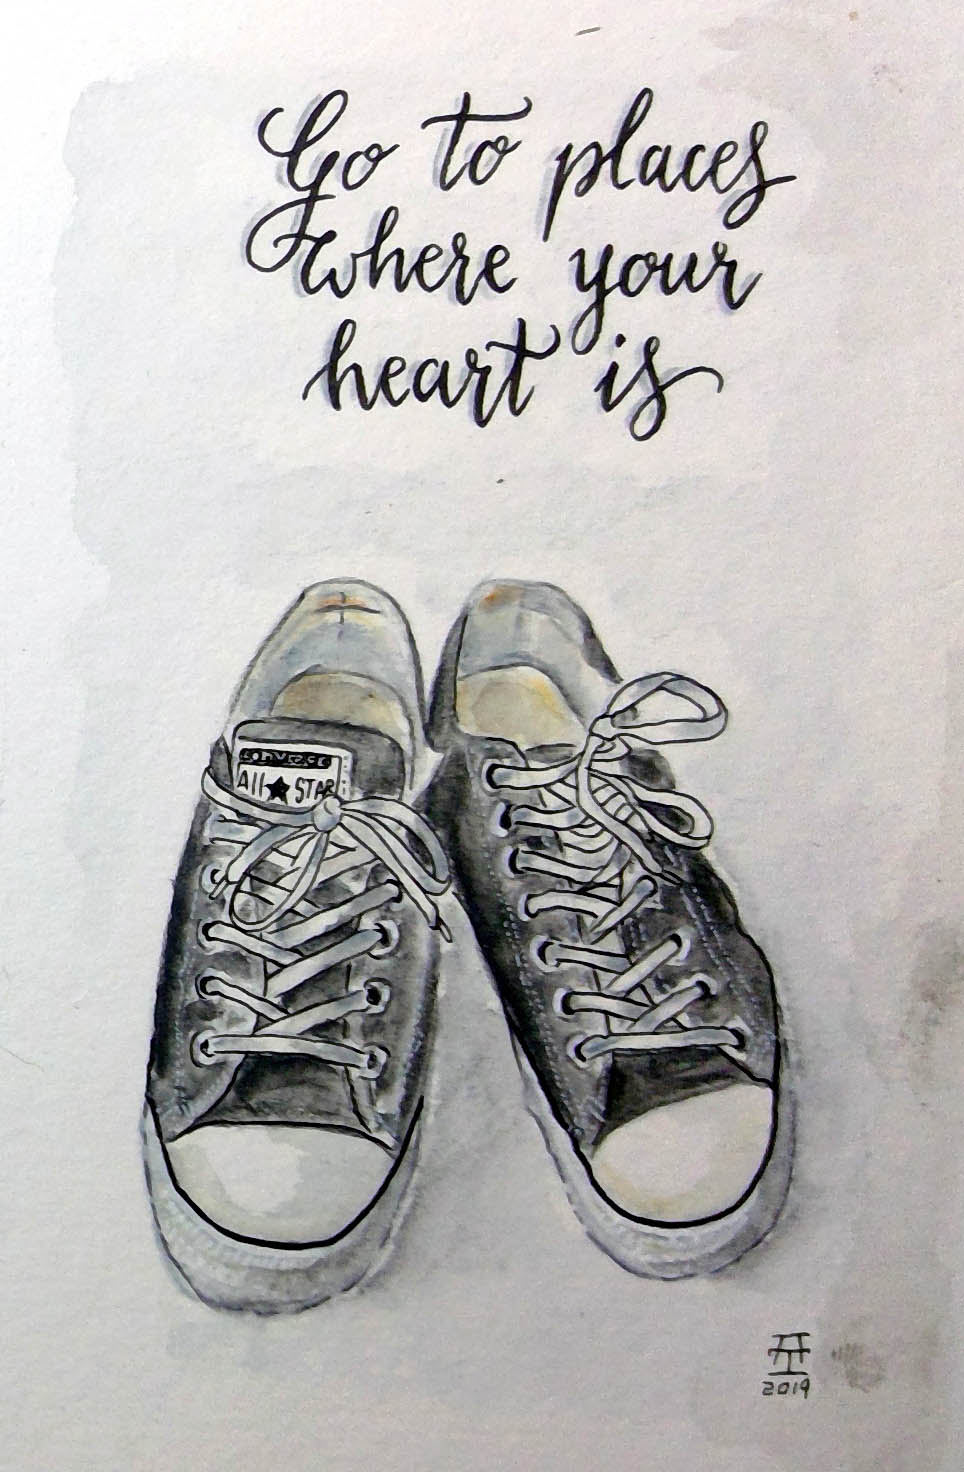 Go to places
where your
heart is
CONVERSE
All ★ STAR
2019